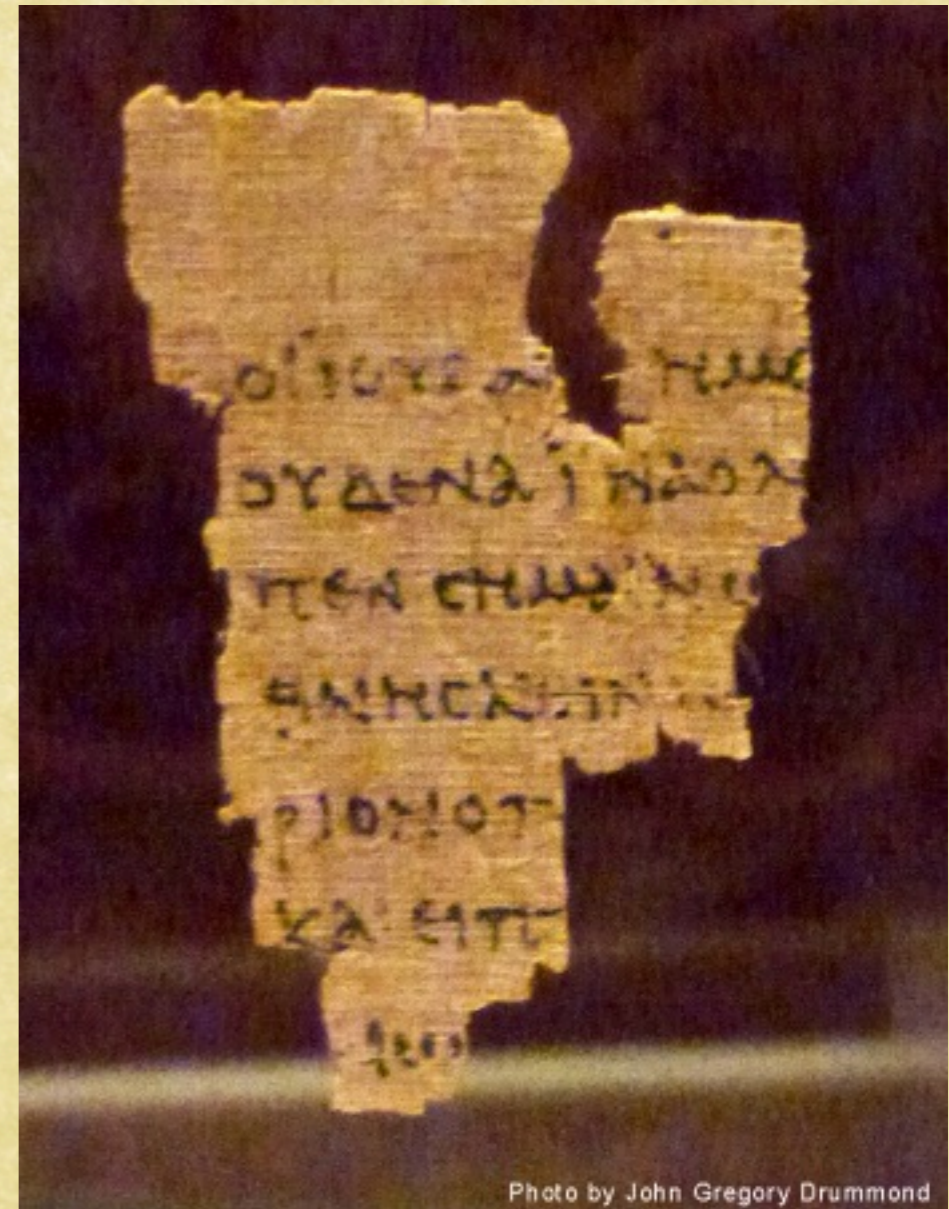 ΟΙ ΙΟΥΔΑΙ ΗΜΕ
ΟΥΔΕΝΑ ΪΝΑ Ο Λ
ΠΕΝ CΗΜΑΙΝΩ
ΘΝΗCΚΕΙΝ
ΡΙΟΝ Ο Π
ΚΑΙ ΕΙΠ
Photo by John Gregory Drummond